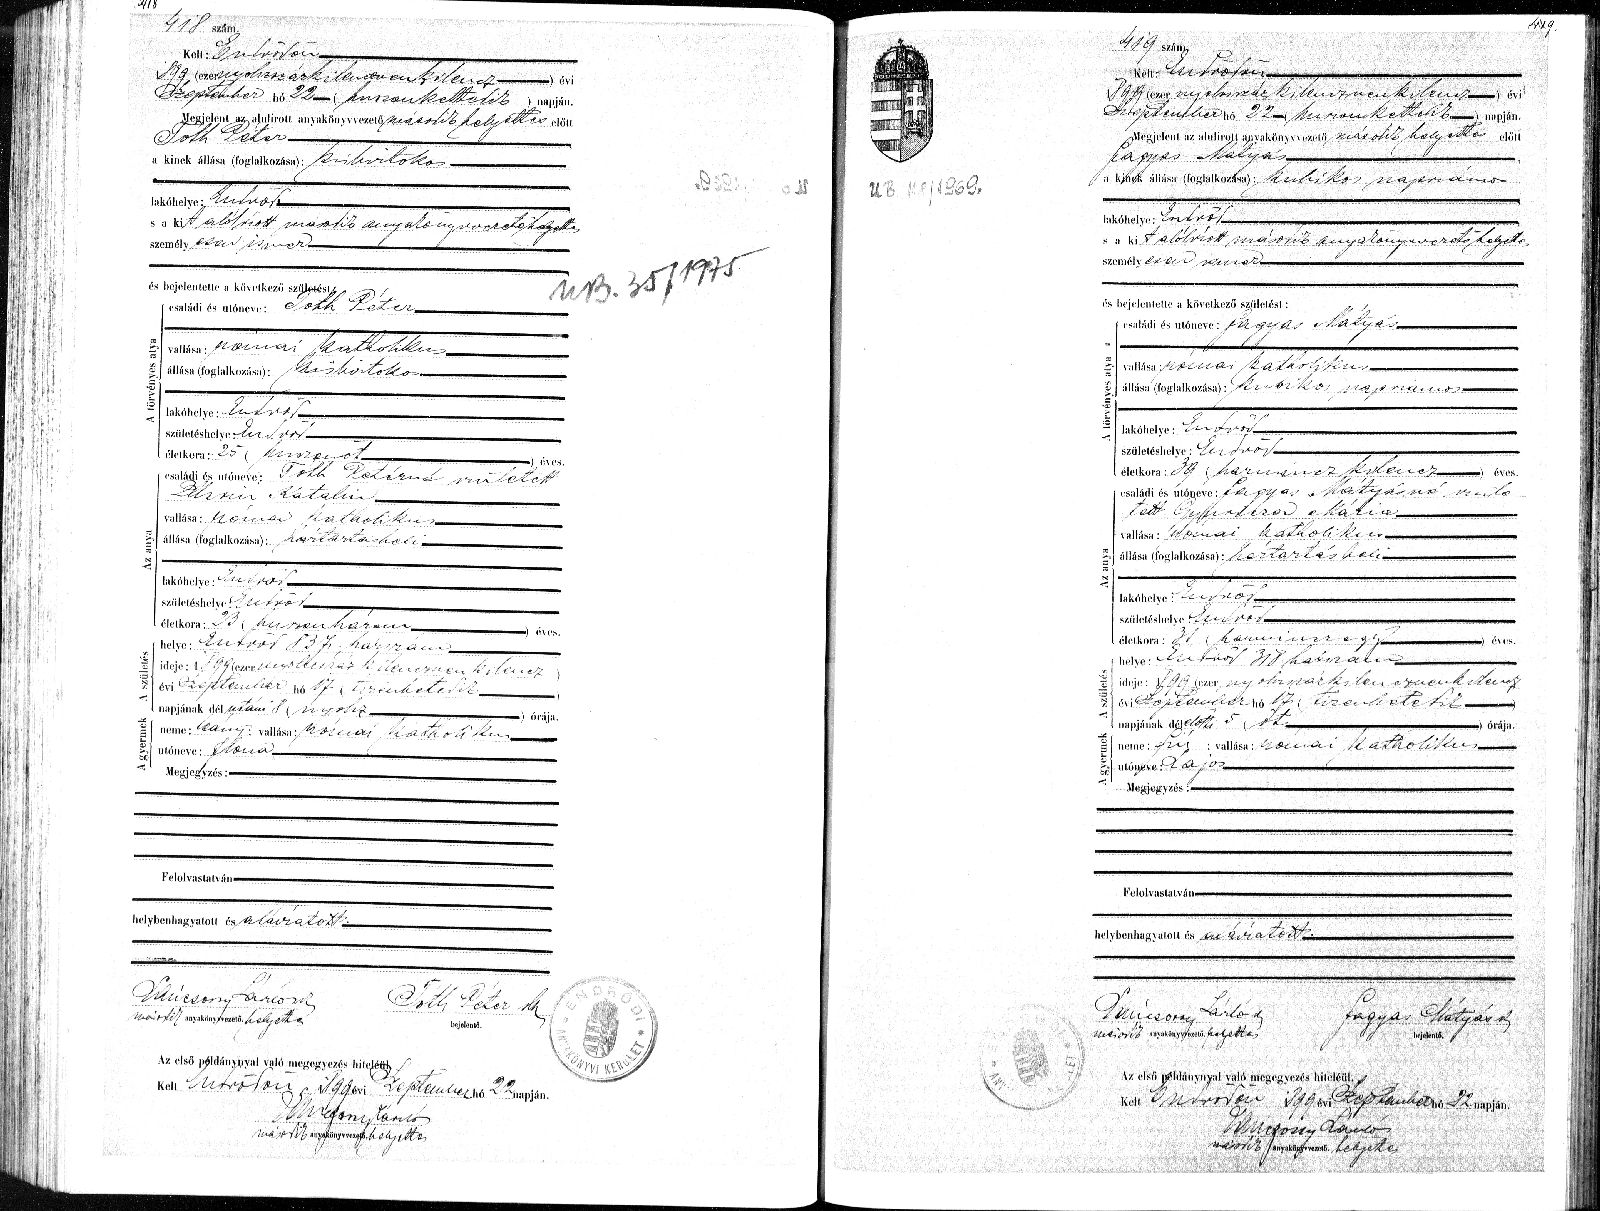 418
418 szám.
Kelt: Endrődön
899 (ezer nyolcszázkilencvenkilencz) évi
Szeptember hó 22 (huszonkettedik) napján.
Megjelent az alulirott anyakönyvvezető második helyettes előtt
Tóth Péter
a kinek állása (foglalkozása): kisbirtokos
lakóhelye: Endrőd
s a kit alólírott második anyakönyvvezető helyettes
személyesen ismer
és bejelentette a következő születést:
A törvényes atya
családi és utóneve: Tóth Péter
vallása: római katholikus
állása (foglalkozása): kisbirtokos
lakóhelye: Endrőd
születéshelye: Endrőd
életkora: 25 (huszonöt) éves.
Az anya
családi és utóneve: Tóth Péterné született
Katalin
vallása: római katholikus
állása (foglalkozása): háztartásbeli
lakóhelye: Endrőd
születéshelye: Endrőd
életkora: 23 (huszonhárom) éves.
A születés
helye: Endrőd 837 házszám
ideje: 1899 (ezer nyolcszázkilencvenkilencz)
évi Szeptember hó 17 (tizenhetedik)
napjának dél utáni 8 (nyolcz) órája.
A gyermek
neme: leány: vallása: római katholikus
utóneve: Ilona
Megjegyzés:
Felolvastatván
helybenhagyatott és aláiratott.
László
második anyakönyvvezető. helyettes
Tóth Péter
bejelentő.
Az első példánynyal való megegyezés hiteléül.
Kelt Endrődön 899 évi Szeptember hó 22 napján.
László
második anyakönyvvezető. helyettes
ENDRŐDI
ANYAKÖNYVI KERÜLET
UB. 35/1975
419.
419 szám.
Kelt: Endrődön
899 (ezer nyolcszázkilenczvenkilencz) évi
Szeptember hó 22 (huszonkettedik) napján.
Megjelent az alulirott anyakönyvvezető második helyettes előtt
Fagyas Mátyás
a kinek állása (foglalkozása): kubikos napszámos
lakóhelye: Endrőd
s a kit alólírott második anyakönyvvezető helyettes
személyesen ismer
és bejelentette a következő születést:
A törvényes atya
családi és utóneve: Fagyas Mátyás
vallása: római katholikus
állása (foglalkozása): kubikos napszámos
lakóhelye: Endrőd
születéshelye: Endrőd
életkora: 39 (harmincz kilencz) éves.
Az anya
családi és utóneve: Fagyas Mátyásné szüle-
tett Mária
vallása: római katholikus
állása (foglalkozása): háztartásbeli
lakóhelye: Endrőd
születéshelye: Endrőd
életkora: 31 (harminczegy) éves.
A születés
helye: Endrőd 318 házszám
ideje: 1899 (ezer nyolcszázkilenczvenkilencz
évi Szeptember hó 17 (tizenhetedik)
napjának dél előtti 5 (öt) órája.
A gyermek
neme: fiú: vallása: római katholikus
utóneve: Lajos
Megjegyzés:
Felolvastatván
helybenhagyatott és aláiratott.
László
második anyakönyvvezető. helyettes
Fagyas Mátyás
bejelentő.
Az első példánynyal való megegyezés hiteléül.
Kelt Endrődön 899 évi Szeptember hó 22 napján.
László
második anyakönyvvezető. helyettes